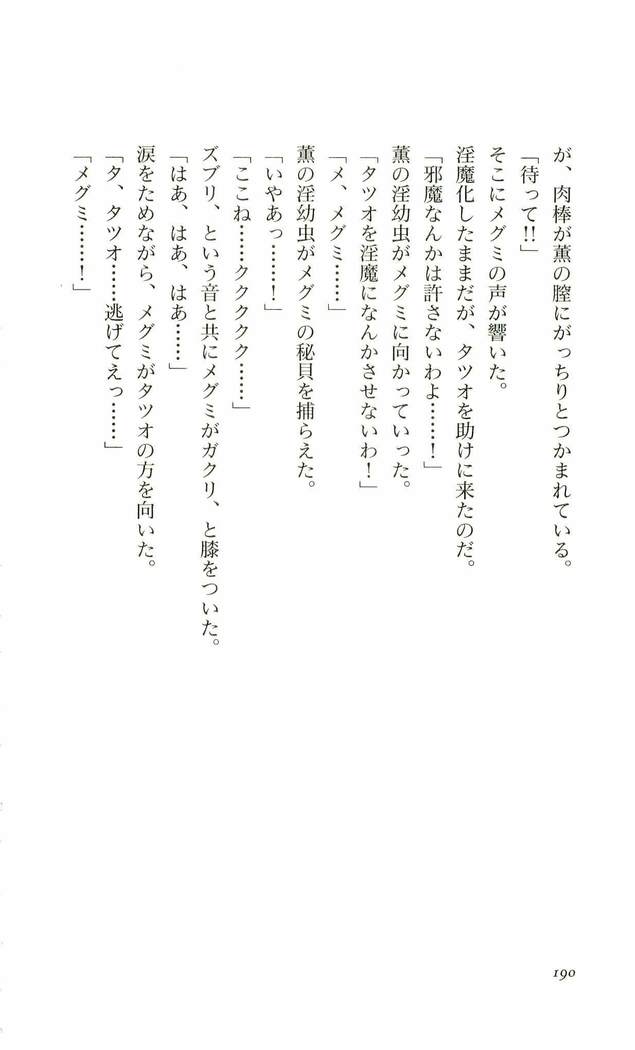 が、肉棒が薫の膣にがっちりとつかまれている。
「待って!!」
そこにメグミの声が響いた。
淫魔化したままだが、タツオを助けに来たのだ。
「邪魔なんかは許さないわよ……！」
薫の淫幼虫がメグミに向かっていった。
「タツオを淫魔になんかさせないわ！」
「メ、メグミ……」
薫の淫幼虫がメグミの秘貝を捕らえた。
「いやあっ……！」
「ここね……ククククク……」
ズブリ、という音と共にメグミがガクリ、と膝をついた。
「はあ、はあ、はあ……」
涙をためながら、メグミがタツオの方を向いた。
「タ、タツオ……逃げてえっ……」
「メグミ……！」
190